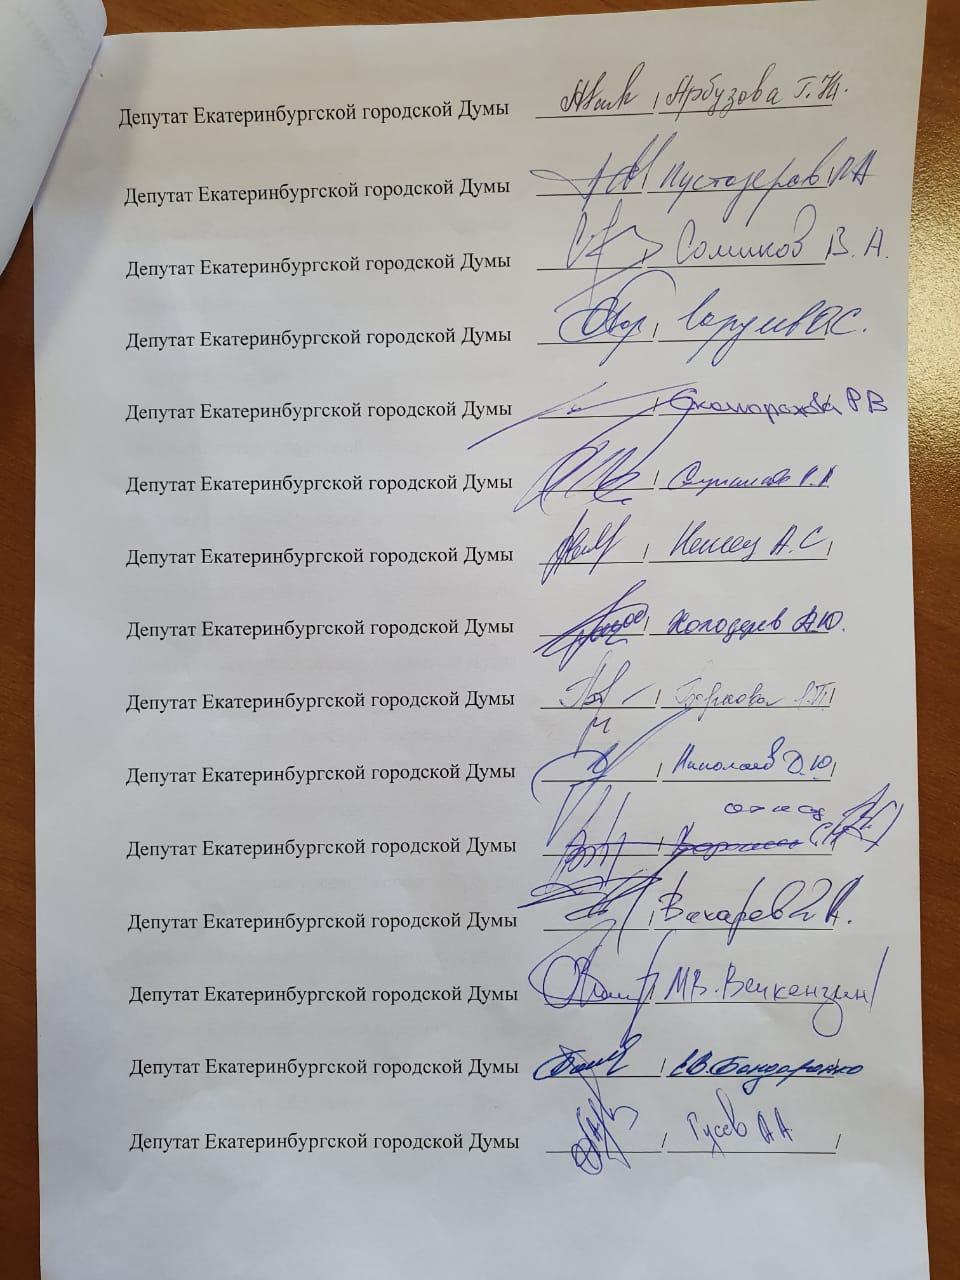 Депутат Екатеринбургской городской Думы / Арбузова Г.Н.
Депутат Екатеринбургской городской Думы / Пустозеров
Депутат Екатеринбургской городской Думы Сомиков В. А.
Депутат Екатеринбургской городской Думы /
Депутат Екатеринбургской городской Думы / Скоморохова РВ
Депутат Екатеринбургской городской Думы /
Депутат Екатеринбургской городской Думы / А.С /
Депутат Екатеринбургской городской Думы / Холодарев А.Ю.
Депутат Екатеринбургской городской Думы / /
Депутат Екатеринбургской городской Думы / Николаев Д.Ю /
Депутат Екатеринбургской городской Думы /
Депутат Екатеринбургской городской Думы / Вихарев
Депутат Екатеринбургской городской Думы / МВ. Вечкензин /
Депутат Екатеринбургской городской Думы / Бондаренко
Депутат Екатеринбургской городской Думы / Гусев АА /